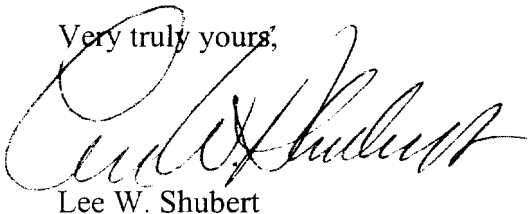 Very truly yours,
Lee W. Shubert
Lee W. Shubert